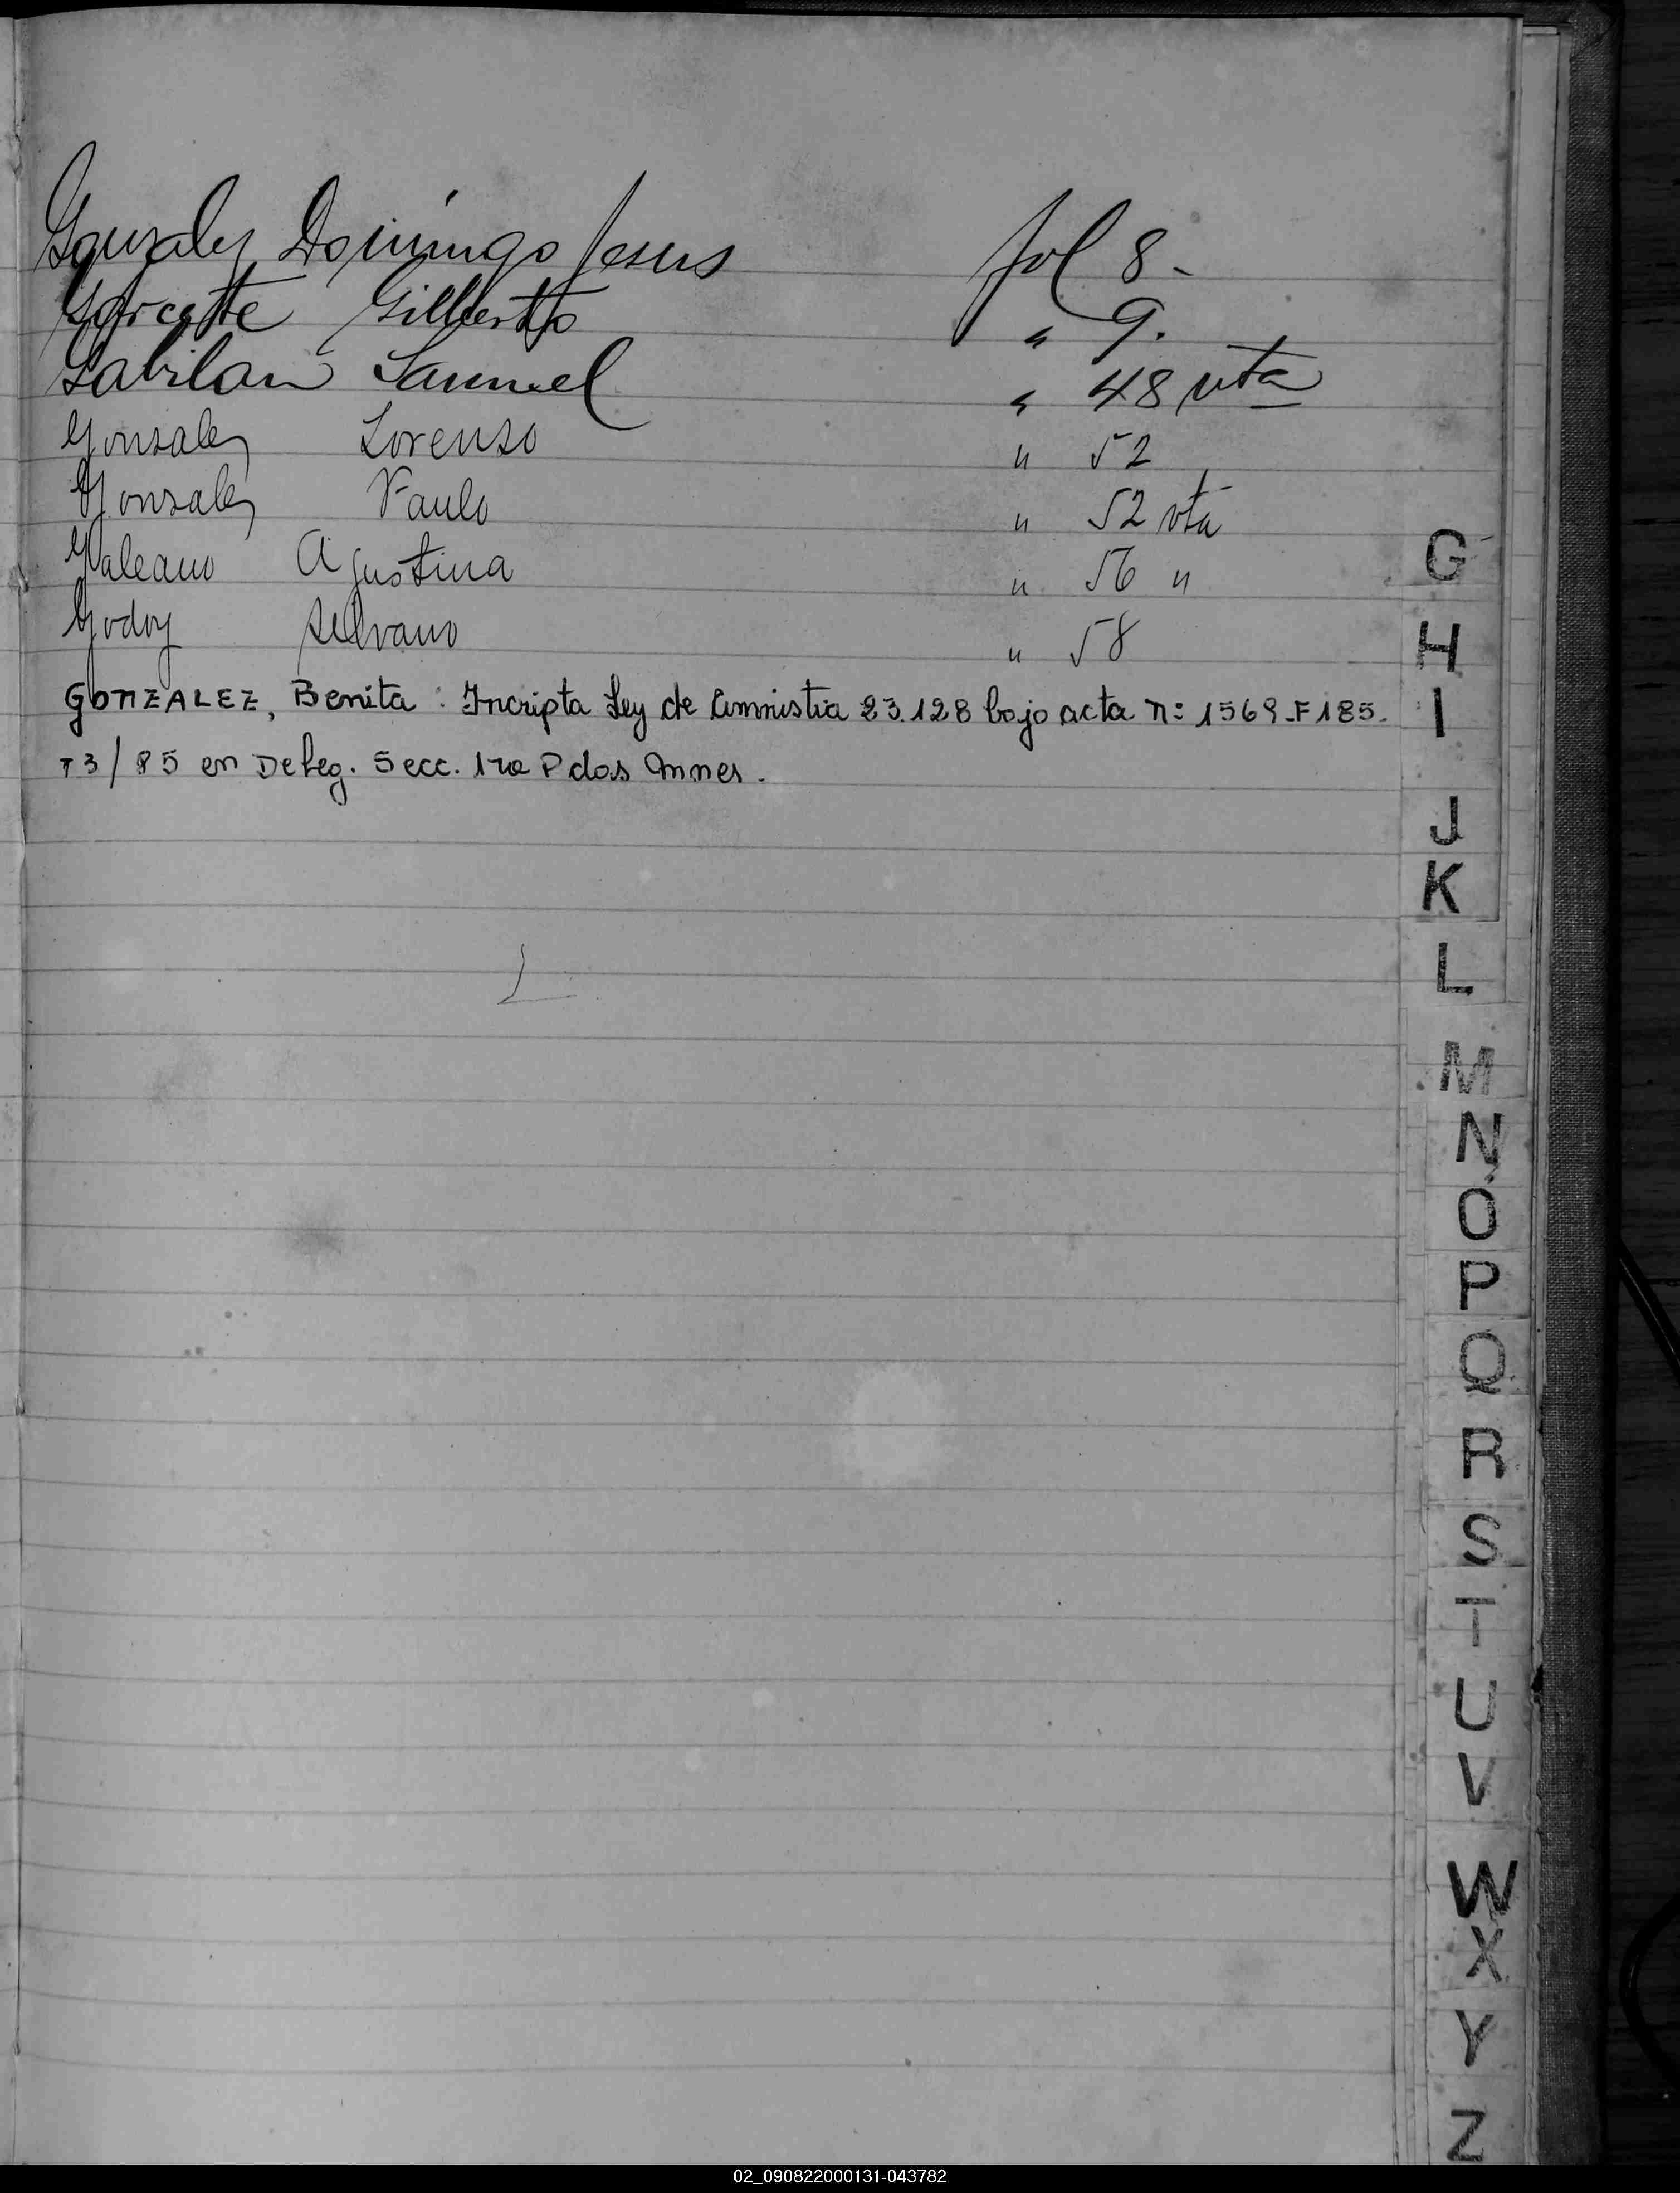 Gonzalez Domingo Jesus fol 8-
Garcette Gilberto " 9.
Gabilan Samuel " 48 vta
Gonsalez Lorenso " 52
Gonsalez Paulo " 52 vta
Galeano Agustina " 56 "
Godoy Selvano " 58
GONZALEZ, Benita : Incripta Ley de Amnistia 23.128 bajo acta nº 1569-F185-
T3/85 en Deleg. Secc. 1ra Pdas Mnes.
G
H
I
J
K
L
M
N
O
P
Q
R
S
T
U
V
W
X
Y
Z
02_090822000131-043782